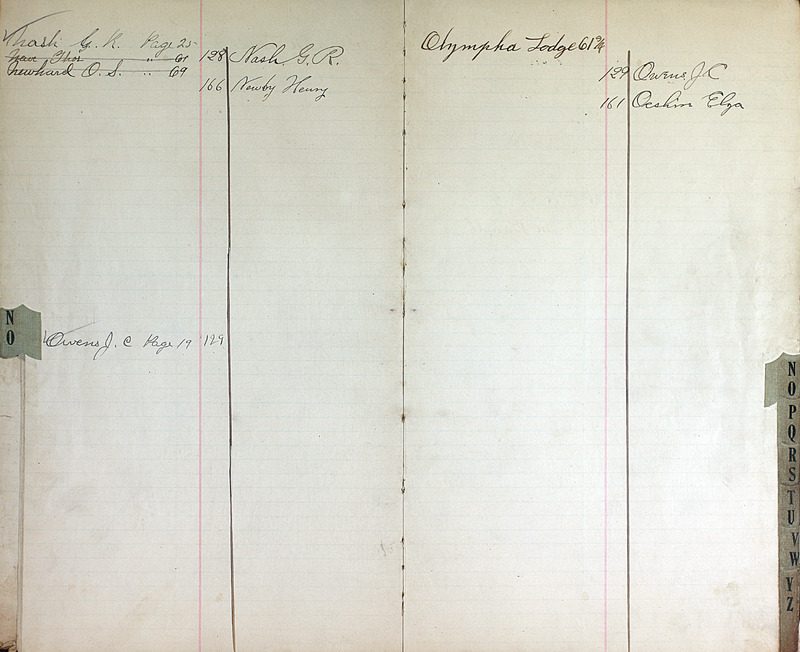 Nash G. R. Page 25
Thos " 61
Newhard O. S. " 69
128 Nash G. R.
166 Newby Henry
N
O
Owens J. C Page 19 129
Olympha Lodge 61
129 Owens J C
161 Oeshim Elza
N
O
P
Q
R
S
T
U
V
W
Y
Z